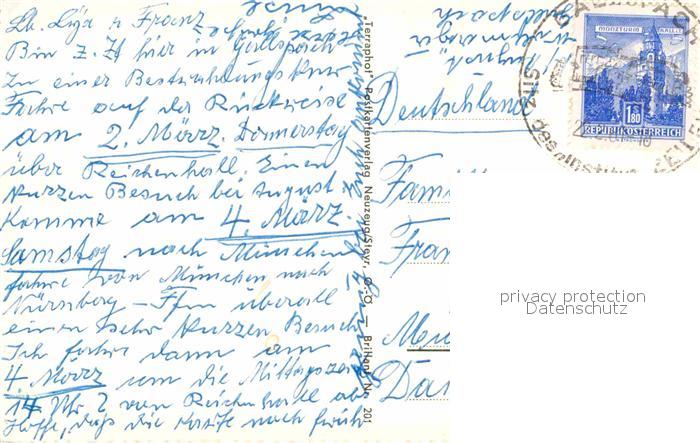 Lb. Liza u Franz
Bin z. Zt hier in Gallspach
Zu einer Bestrahlungskur
Fahre auf der Rückreise
am 2. März. Donnerstag
über Reichenhall. Einen
kurzen Besuch bei August
Komme am 4. März.
Samstag nach München
fahre von München nach
Nürnberg – Ffm überall
einen sehr kurzen Besuch
Ich fahre dann am
4. März um die Mittagszeit
14 Uhr ? von Reichenhall ab
Hoffe, daß die Karte noch früh
Terraphot Postkartenverlag Neuzeug/Steyr, O.-Ö. — Brillant Nr. 201
Deutschland
Fam
Fran
Mü
Da
GALLSPACH
Sitz des Instituts ZEIL
MÜNZTURM HALL I. T.
1.80
REPUBLIK ÖSTERREICH
privacy protection
Datenschutz